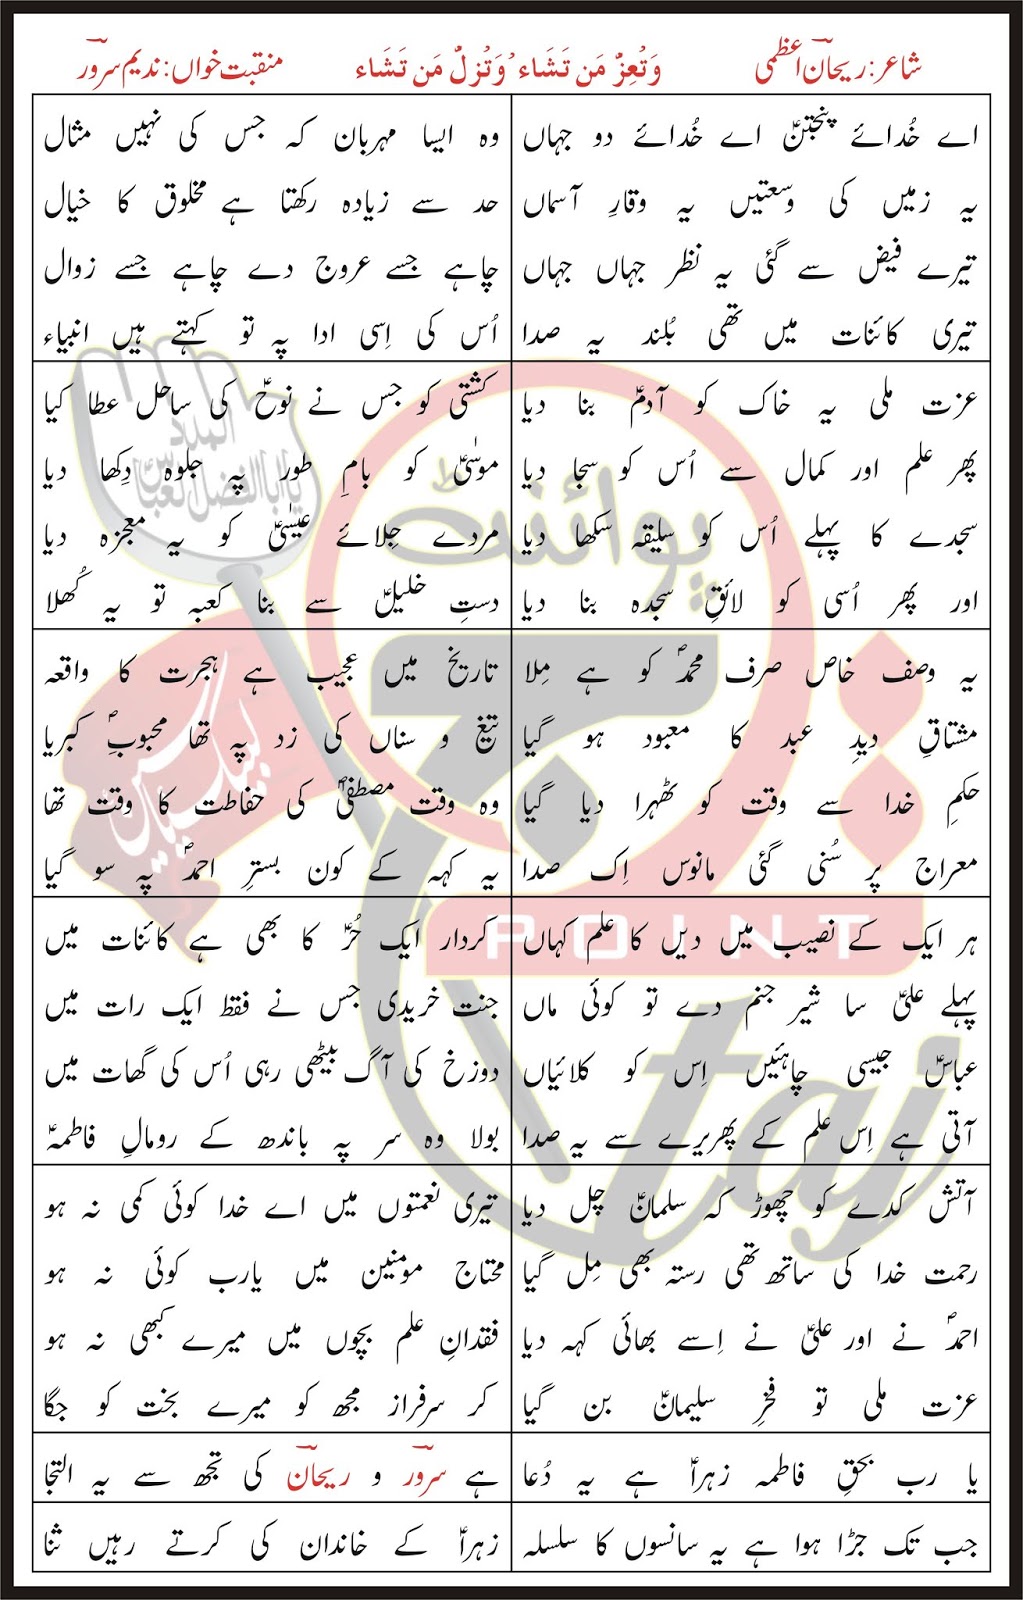 شاعر: ریحان اعظمی وَتُعِزُ مَن تَشَاء ُ وَتُزِلُ مَن تَشَاء منقبت خواں: ندیم سرور
اے خُدائے پنجتنؑ اے خُدائے دو جہاں
یہ زمیں کی وسعتیں یہ وقارِ آسماں
تیرے فیض سے گئی یہ نظر جہاں جہاں
تیری کائنات میں تھی بُلند یہ صدا
وہ ایسا مہربان کہ جس کی نہیں مثال
حد سے زیادہ رکھتا ہے مخلوق کا خیال
چاہے جسے عروج دے چاہے جسے زوال
اُس کی اِسی ادا پہ تو کہتے ہیں انبیاء
عزت ملی یہ خاک کو آدمؑ بنا دیا
پھر علم اور کمال سے اُس کو سجا دیا
سجدے کا پہلے اُس کو سلیقہ سکھا دیا
اور پھر اُسی کو لائقِ سجدہ بنا دیا
کشتی کو جس نے نوحؑ کی ساحل عطا کیا
موسیٰؑ کو بامِ طور پہ جلوہ دِکھا دیا
مردے جِلائے عیسٰیؑ کو یہ معجزہ دیا
دستِ خلیلؑ سے بنا کعبہ تو یہ کُھلا
یہ وصف خاص صرف محمدؐ کو ہے مِلا
مشتاقِ دیدِ عبد کا معبود ہو گیا
حکمِ خدا سے وقت کو ٹھہرا دیا گیا
معراج پر سُنی گئی مانوس اِک صدا
تاریخ میں عجیب ہے ہجرت کا واقعہ
تیغ و سناں کی زد پہ تھا محبوبِؐ کبریا
وہ وقت مصطفیٰؐ کی حفاطت کا وقت تھا
یہ کہہ کے کون بسترِ احمدؐ پہ سو گیا
ہر ایک کے نصیب میں دیں کا علم کہاں
پہلے علیؑ سا شیر جنم دے تو کوئی ماں
عباسؑ جیسی چاہئیں اِس کو کلائیاں
آتی ہے اِس علم کے پھریرے سے یہ صدا
کردار ایک حُرؑ کا بھی ہے کائنات میں
جنت خریدی جس نے فقط ایک رات میں
دوزخ کی آگ بیٹھی رہی اُس کی گھات میں
بولا وہ سر پہ باندھ کے رومالِ فاطمہؑ
آتش کدے کو چھوڑ کہ سلمانؑ چل دیا
رحمت خدا کی ساتھ تھی رستہ بھی مِل گیا
احمدؐ نے اور علیؑ نے اِسے بھائی کہہ دیا
عزت ملی تو فخرِ سلیمانؑ بن گیا
تیری نعمتوں میں اے خدا کوئی کمی نہ ہو
محتاج مومنین میں یارب کوئی نہ ہو
فقدانِ علم بچوں میں میرے کبھی نہ ہو
کر سرفراز مجھ کو میرے بخت کو جگا
یا رب بحقِ فاطمہ زہراؑ ہے یہ دُعا
ہے سرور و ریحان کی تجھ سے یہ التجا
جب تک جڑا ہوا ہے یہ سانسوں کا سلسلہ
زہراؑ کے خاندان کی کرتے رہیں ثنا
المدد
یا ابا الفضل العباس
لبیک یا حسین
پوائنٹ
POINT
taj